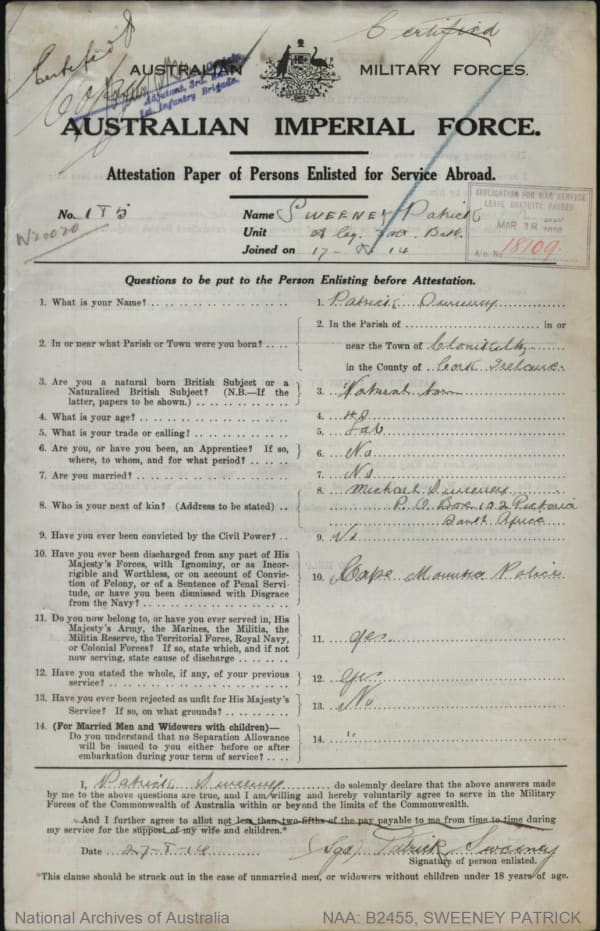 Certified
Certified
Adjutant, 3rd.
1st. Infantry Brigade.
AUSTRALIAN MILITARY FORCES.
AUSTRALIAN IMPERIAL FORCE.
Attestation Paper of Persons Enlisted for Service Abroad.
No. Name SWEENEY Patrick
W20020
Unit Coy. Batt.
Joined on 17- 14
APPLICATION FOR WAR SERVICE
LEAVE GRATUITY PASSED
MAR 18
A/c. No. 18109.
Questions to be put to the Person Enlisting before Attestation.
1. What is your Name? 1. Patrick Sweeney
2. In or near what Parish or Town were you born? 2. In the Parish of in or
near the Town of Clonikilty
in the County of Cork Ireland.
3. Are you a natural born British Subject or a
Naturalized British Subject? (N.B.—If the
latter, papers to be shown.) 3. Natural born
4. What is your age? 4.
5. What is your trade or calling? 5. Lab
6. Are you, or have you been, an Apprentice? If so,
where, to whom, and for what period? 6. No
7. Are you married? 7. No
8. Who is your next of kin? (Address to be stated) 8. Michael Sweeney
P.O. Box 102 Pretoria
South Africa
9. Have you ever been convicted by the Civil Power? 9. No
10. Have you ever been discharged from any part of His
Majesty's Forces, with Ignominy, or as Incor-
rigible and Worthless, or on account of Convic-
tion of Felony, or of a Sentence of Penal Servi-
tude, or have you been dismissed with Disgrace
from the Navy? 10. Cape Mounted Police
11. Do you now belong to, or have you ever served in, His
Majesty's Army, the Marines, the Militia, the
Militia Reserve, the Territorial Force, Royal Navy,
or Colonial Forces? If so, state which, and if not
now serving, state cause of discharge 11. yes
12. Have you stated the whole, if any, of your previous
service? 12. yes
13. Have you ever been rejected as unfit for His Majesty's
Service? If so, on what grounds? 13. No
14. (For Married Men and Widowers with children)—
Do you understand that no Separation Allowance
will be issued to you either before or after
embarkation during your term of service? 14. "
I, Patrick Sweeney do solemnly declare that the above answers made
by me to the above questions are true, and I am willing and hereby voluntarily agree to serve in the Military
Forces of the Commonwealth of Australia within or beyond the limits of the Commonwealth.
And I further agree to allot not less than two-fifths of the pay payable to me from time to time during
my service for the support of my wife and children.*
Date (Sgd) Patrick Sweeney
Signature of person enlisted.
*This clause should be struck out in the case of unmarried men, or widowers without children under 18 years of age.
National Archives of Australia NAA: B2455, SWEENEY PATRICK